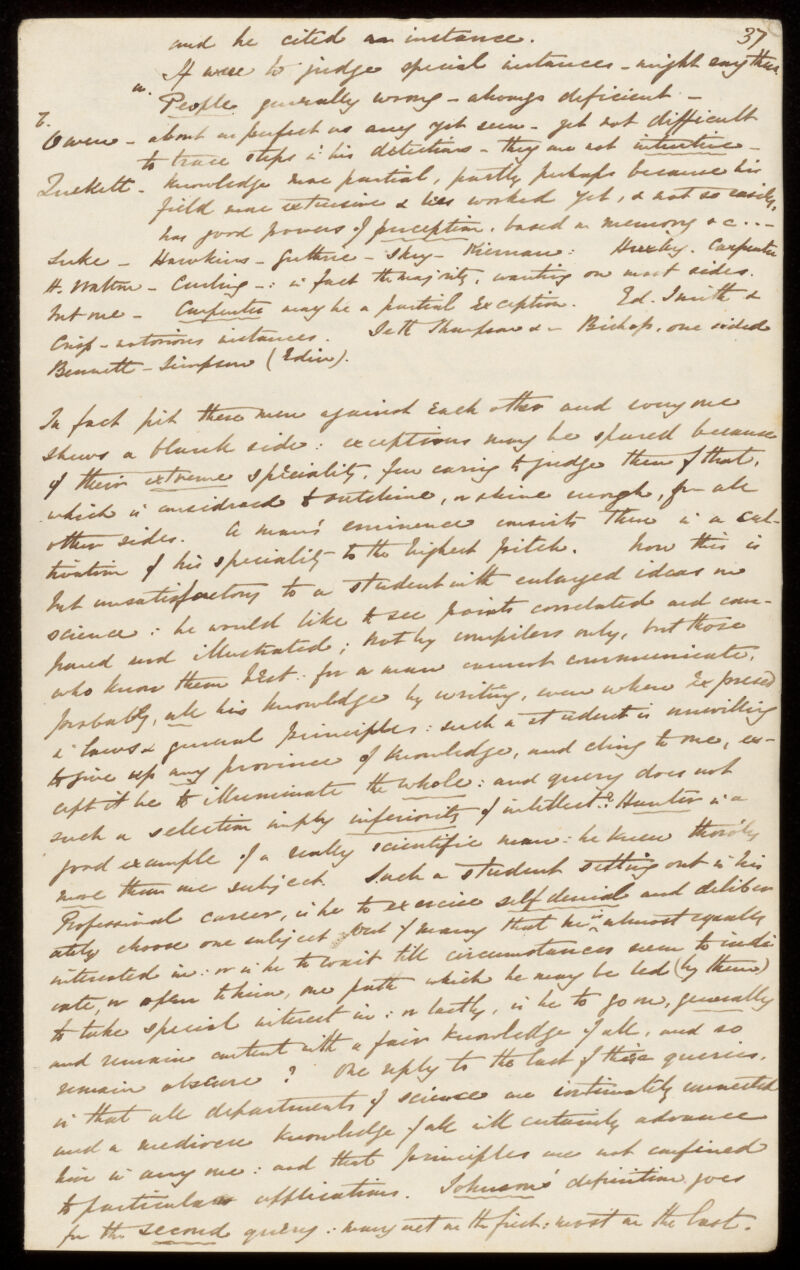 37
and he cited an instance.
If were to judge special instances - might say thus
a. People generally wrong - always deficient -
b. Owen - about as perfect as any yet seen - yet not difficult
to trace steps in his detections - they are not intuitive -
Quekett - knowledge more partial, partly perhaps because his
field more extensive & less worked yet, & not so easily,
has good powers of perception, based on memory &c.. -
Luke - Hawkins - Guthrie - Skey - Kiernan: Huxley. Carpenter
H. Walton - Curling -: in fact the majority, wanting on most sides.
but one - Carpenter may be a partial exception. Ed. Smith &
Crisp - notorious instances. Seth Thompson & - Bishop, one sided
Bennett - Simpson (Edin).
In fact pit these men against each other and every one
shews a blank side: exceptions may be spared because
of their extreme speciality, few caring to judge them of that,
which is considered to outshine, or shine enough, for all
other sides. A man's eminence consists then in a cul-
tivation of his speciality to the highest pitch. Now this is
but unsatisfactory to a student with enlarged ideas on
science: he would like to see points correlated and com-
pared and illustrated; not by compilers only, but those
who know them best: for a man cannot communicate,
probably, all his knowledge by writing, even where expressed
in laws & general principles: such a student is unwilling
to give up any province of knowledge, and cling to one, ex-
cept it be to illuminate the whole: and query does not
such a selection imply inferiority of intellect? Hunter is a
good example of a really scientific man: he knew thoro'ly
more than one subject. Such a student setting out in his
Professional career, is he to exercise self denial and deliber
ately choose one subject out of many that he is almost equally
interested in: or is he to wait till circumstances seem to indi
cate, or open to him, one path which he may be led (by them)
to take special interest in: or lastly, is he to go on, generally
and remain content with a fair knowledge of all, and so
remain obscure? One reply to the last of these queries,
is that all departments of science are intimately connected
and a mediocre knowledge of all will certainly advance
him in any one: and that principles are not confined
to particular applications. Johnson's definition goes
for the second query: many act on the first: most on the last.